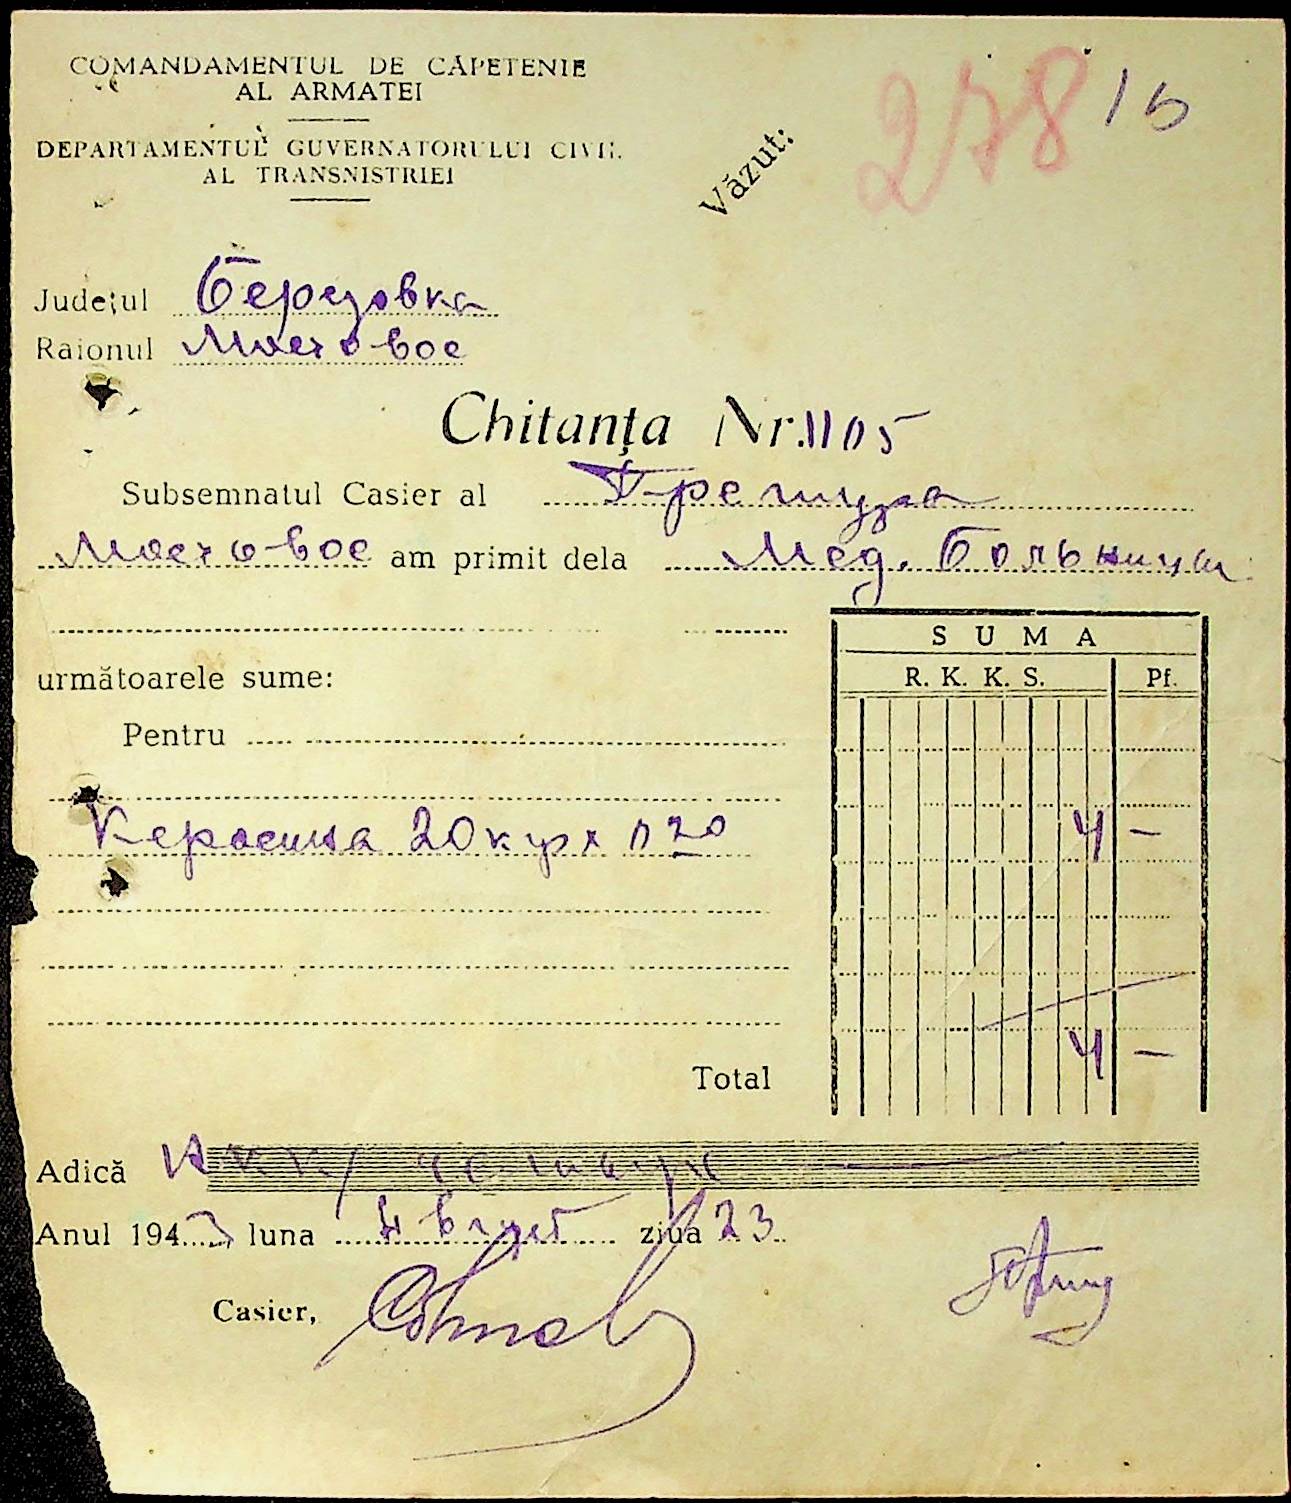 COMANDAMENTUL DE CĂPETENIE
AL ARMATEI
DEPARTAMENTUL GUVERNATORULUI CIVIL
AL TRANSNISTRIEI
Văzut:
278/5
Județul Березовка
Raionul Мостовое
Chitanța Nr. 1105
Subsemnatul Casier al Претура
Мостовое am primit dela Мед. Больницы
SUMA
următoarele sume:
R. K. K. S. Pf.
Pentru
Керосина 20 4 –
4 –
Total
Adică
Anul 1943 luna Август ziua 23
Casier,